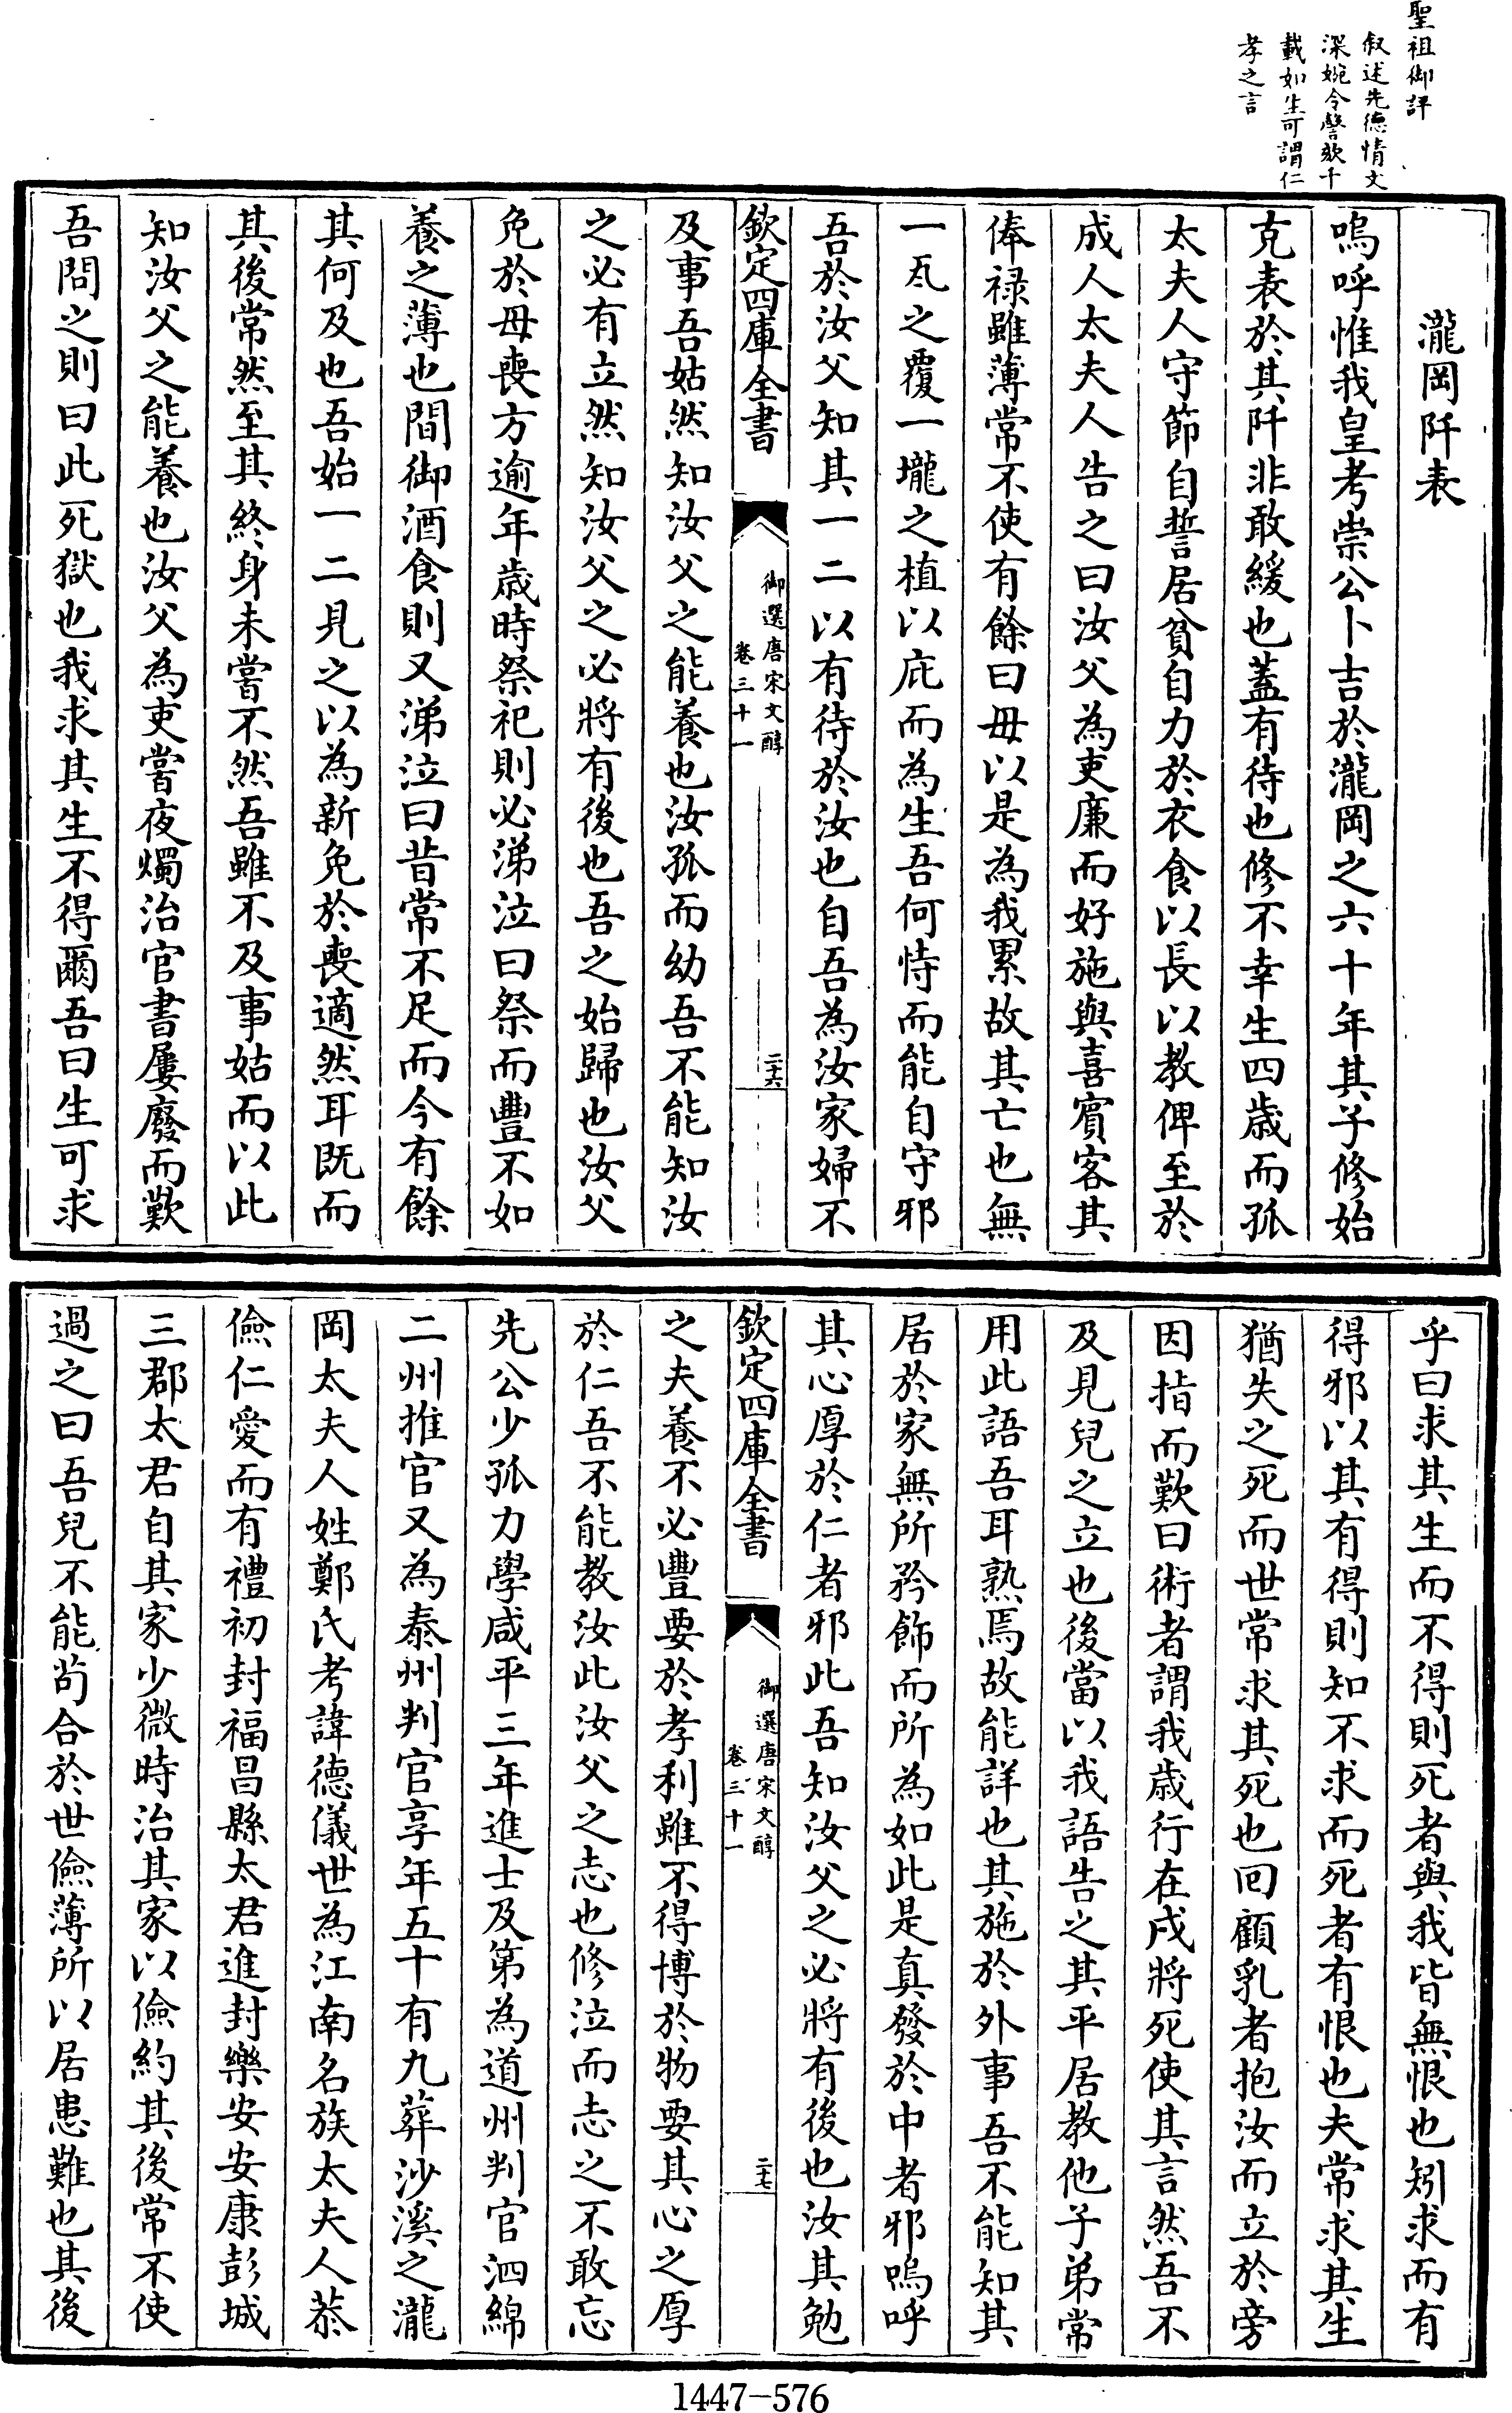 聖祖御評
叙述先德情文
深婉令謦欬千
載如生可謂仁
孝之言
瀧岡阡表
嗚呼惟我皇考崇公卜吉於瀧岡之六十年其子修始
克表於其阡非敢緩也蓋有待也修不幸生四歲而孤
太夫人守節自誓居貧自力於衣食以長以教俾至於
成人太夫人告之曰汝父為吏廉而好施與喜賓客其
俸祿雖薄常不使有餘曰毋以是為我累故其亡也無
一瓦之覆一壠之植以庇而為生吾何恃而能自守邪
吾於汝父知其一二以有待於汝也自吾為汝家婦不
欽定四庫全書
御選唐宋文醇
卷三十一
二十六
及事吾姑然知汝父之能養也汝孤而幼吾不能知汝
之必有立然知汝父之必將有後也吾之始歸也汝父
免於母喪方逾年歲時祭祀則必涕泣曰祭而豐不如
養之薄也間御酒食則又涕泣曰昔常不足而今有餘
其何及也吾始一二見之以為新免於喪適然耳既而
其後常然至其終身未嘗不然吾雖不及事姑而以此
知汝父之能養也汝父為吏嘗夜燭治官書屢廢而歎
吾問之則曰此死獄也我求其生不得爾吾曰生可求
乎曰求其生而不得則死者與我皆無恨也矧求而有
得邪以其有得則知不求而死者有恨也夫常求其生
猶失之死而世常求其死也回顧乳者抱汝而立於旁
因指而歎曰術者謂我歲行在戌將死使其言然吾不
及見兒之立也後當以我語告之其平居教他子弟常
用此語吾耳熟焉故能詳也其施於外事吾不能知其
居於家無所矜飾而所為如此是真發於中者邪嗚呼
其心厚於仁者邪此吾知汝父之必將有後也汝其勉
欽定四庫全書
御選唐宋文醇
卷三十一
二十七
之夫養不必豐要於孝利雖不得博於物要其心之厚
於仁吾不能教汝此汝父之志也修泣而志之不敢忘
先公少孤力學咸平三年進士及第為道州判官泗綿
二州推官又為泰州判官享年五十有九葬沙溪之瀧
岡太夫人姓鄭氏考諱德儀世為江南名族太夫人恭
儉仁愛而有禮初封福昌縣太君進封樂安安康彭城
三郡太君自其家少微時治其家以儉約其後常不使
過之曰吾兒不能苟合於世儉薄所以居患難也其後
1447-576